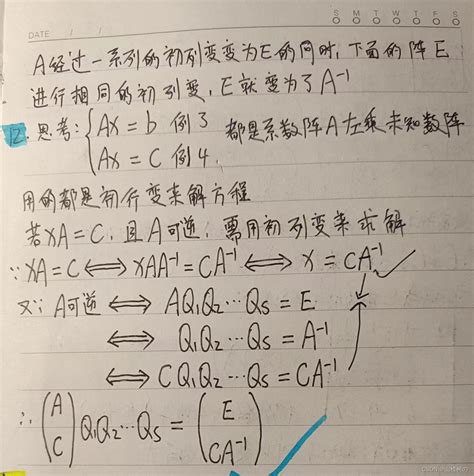 S M T W T F S
DATE / /
A经过一系列的初列变变为E的同时,下面的阵E
进行相同的初列变,E就变为了A⁻¹
12. 思考: { AX = b 例3 都是系数阵A左乘未知数阵
AX = C 例4.
用的都是初行变来解方程
若XA = C, 且A可逆, 需用初列变来求解
∵ XA = C ⟺ XAA⁻¹ = CA⁻¹ ⟺ X = CA⁻¹
又∵ A可逆 ⟺ AQ₁Q₂⋯Qs = E
⟺ Q₁Q₂⋯Qs = A⁻¹
⟺ CQ₁Q₂⋯Qs = CA⁻¹
∴ (A C) Q₁Q₂⋯Qs = (E CA⁻¹)